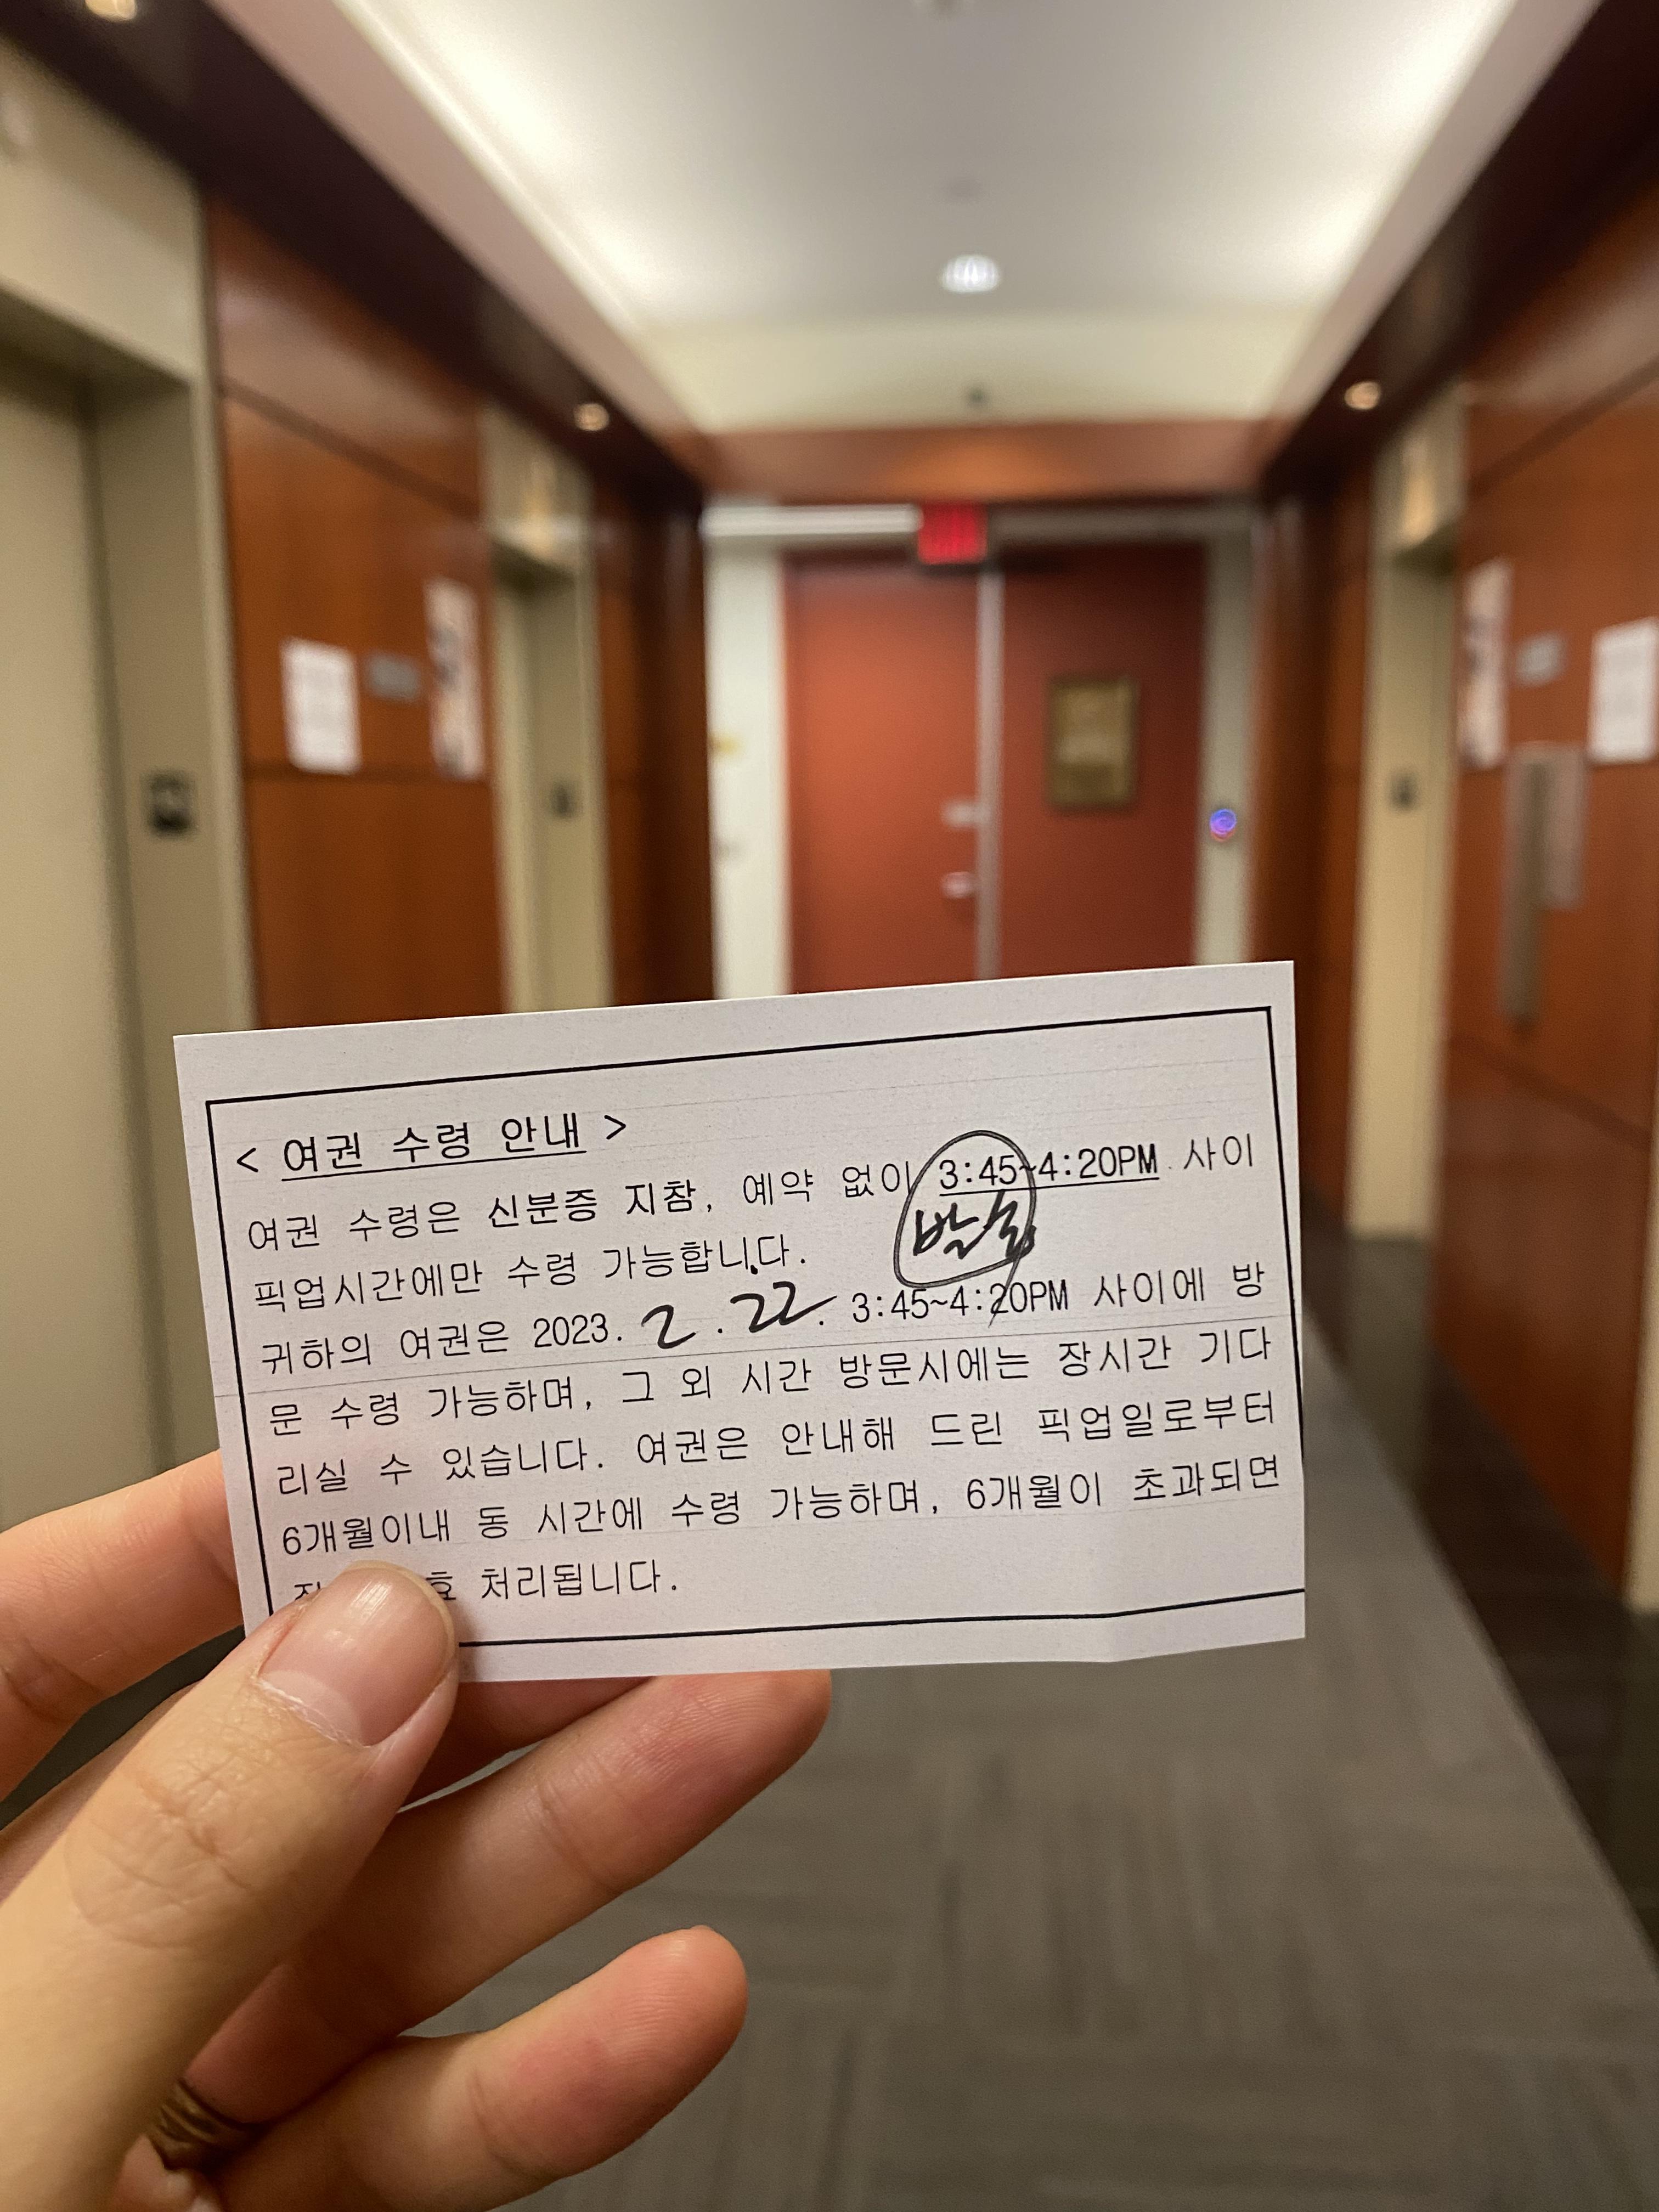 < 여권 수령 안내 >
여권 수령은 신분증 지참, 예약 없이 3:45~4:20PM 사이
픽업시간에만 수령 가능합니다.
귀하의 여권은 2023. 2 . 22. 3:45~4:20PM 사이에 방
문 수령 가능하며, 그 외 시간 방문시에는 장시간 기다
리실 수 있습니다. 여권은 안내해 드린 픽업일로부터
6개월이내 동 시간에 수령 가능하며, 6개월이 초과되면
처리됩니다.